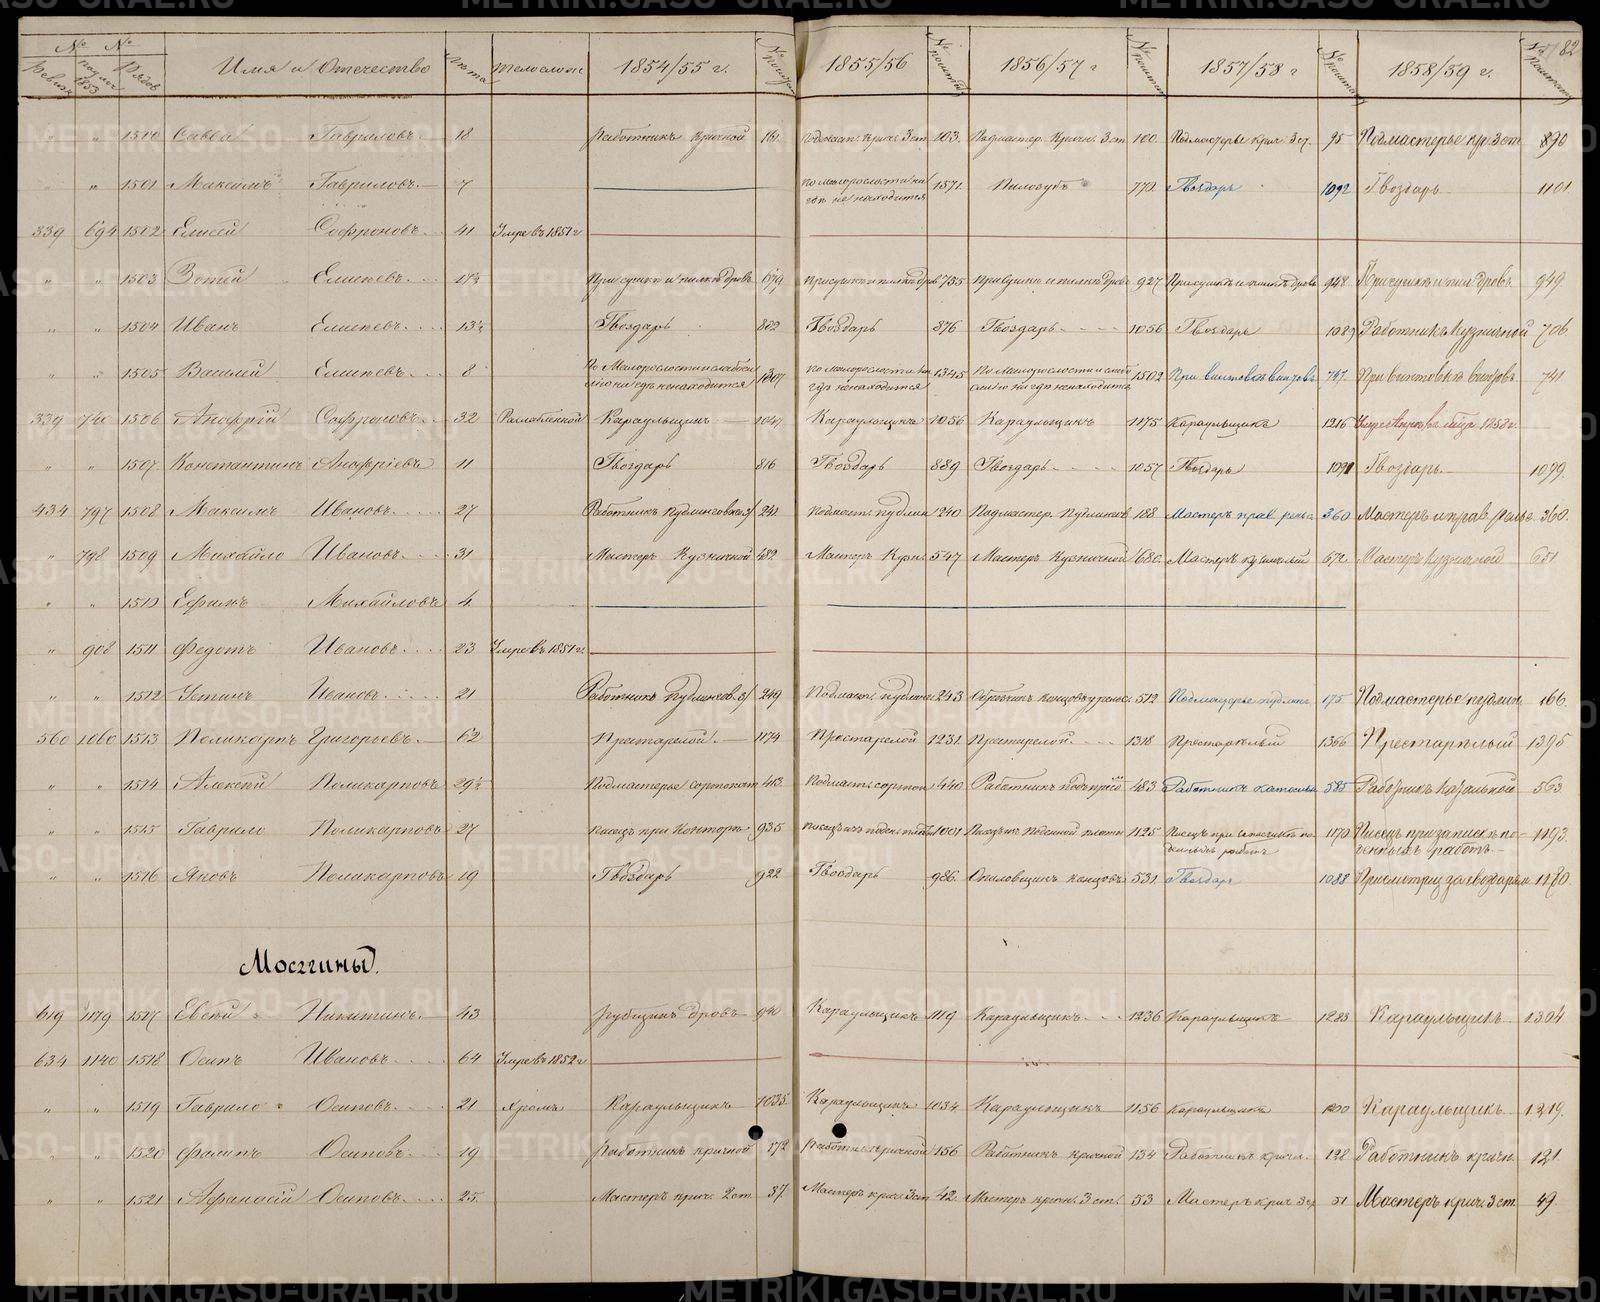 82
№ Ревиз. № по 1853 Рядов. Имя и Отчество Лета 1854/55 г. 1855/56 1856/57 г 1857/58 г 1858/59 г.
" " 1500 Савва Гавриловъ 18 Работникъ кричной 161. Подмаст. крич. 3 ст. 103. Подмастер. Кричн. 3 ст. 100. Подмастерье крич. 3 ст. 95 Подмастерье кр. 3 ст. 890
" " 1501 Максимъ Гавриловъ 7 по малорослости ни где не находится 1571. Пилозубъ 770. Гвоздарь 1092 Гвоздарь 1101
339 694 1502 Елисей Софроновъ 41 Умре въ 1851 г
" " 1503 Зотей Елисеевъ 17½ При сушке и пилке дровъ 679 При сушке и пилке дровъ 755 При сушке и пилке дровъ 927 При сушке и пилке дровъ 948 При сушке и пил. дровъ 949.
" " 1504 Иванъ Елисеевъ 13½ Гвоздарь 802 Гвоздарь 876 Гвоздарь 1056 Гвоздарь 1089 Работникъ Кузничной 706
" " 1505 Василий Елисеевъ 8 по Малорослости и слабосилию ни где не находится 1307 по малорослости ни где не находится 1345 По Малорослости и слабосилию ни где не находится 1502 При винтовке винтовъ 747. При винтовке винтовъ 741
339 740 1506 Анофрий Софроновъ 32 Разслабленной Караульщикъ 1047 Караульщикъ 1056 Караульщикъ 1175 Караульщикъ 1216
" " 1507. Константинъ Анофриевъ 11 Гвоздарь 816 Гвоздарь 889 Гвоздарь 1057 Гвоздарь 1091 Гвоздарь 1099.
434 797 1508 Максимъ Ивановъ 27 Работникъ Пудлинговаго 241 Подмаст. пудлин 240 Подмастер. Пудлингов 188 Мастеръ прав. рельс 360 Мастеръ и прав. рельс 360.
" 798 1509 Михайло Ивановъ 31 Мастеръ Кузничной 482 Мастеръ Кузн. 547 Мастеръ Кузничной 680. Мастеръ кузничный 672 Мастеръ Кузничной 651
" " 1510 Ефимъ Михайловъ 4
" 908 1511 Федотъ Ивановъ 23 Умре въ 1851 г.
" " 1512 Устинъ Ивановъ 21 Работникъ Пудлингов. 249 Подмаст. пудлин 243 512 Подмастерье пудлин. 175 Подмастерье пудлин. 166.
560 1060 1513 Поликарпъ Григорьевъ 62 Престарелой 1174 Престарелой 1231 Престарелой 1318 Престарелый 1366 Престарелый 1395
" " 1514 Алексей Поликарповъ 29½ Подмастерье сортокат 413 Подмаст. сортов 440 Работникъ 483 Работникъ катальн 585 Работникъ катальной 563
" " 1515 Гаврило Поликарповъ 27 писецъ при Конторе 935 1001 Писецъ Поденной платы 1125 Писецъ при записке поденныхъ работъ 1170 Писецъ при записке поденныхъ работъ 1193.
" " 1516 Яковъ Поликарповъ 19 Гвоздарь 922 Гвоздарь 986. Опиловщикъ концовъ 531 Гвоздарь 1088 Присмотрщ. за гвоздарями 1170.
Мосгины.
619 1179 1517 Евсей Никитинъ 43 рубщикъ дровъ 940 Караульщикъ 1119 Караульщикъ 1236 Караульщикъ 1283 Караульщикъ 1304
634 1140 1518 Осипъ Ивановъ 64 Умре въ 1852 г
" " 1519 Гаврило Осиповъ 21 Хромъ Караульщикъ 1035. Караульщикъ 1034. Караульщикъ 1156 Караульщикъ 1200 Караульщикъ 1219.
" " 1520 Филипъ Осиповъ 19 Работникъ кричной 172 Работник кричной 156 Работникъ кричной 134 Работникъ крич. 128 Работникъ кричн. 121
" " 1521 Афанасий Осиповъ 25 Мастеръ крич. 2 ст. 37. Мастеръ крич. 3 ст. 42. Мастеръ кричн. 3 ст. 53 Мастеръ крич 3 ст 51 Мастеръ крич. 3 ст. 49.
METRIKI.GASO-URAL.RU